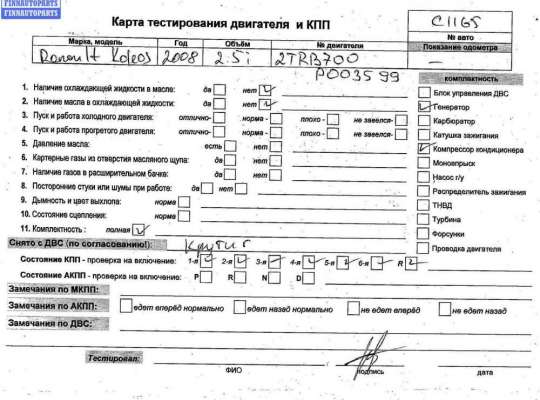 FINNAUTOPARTS
FINNAUTOPARTS
Карта тестирования двигателя и КПП
C1165
№ авто
Марка, модель Год Объём № двигателя Показание одометра
Renault Koleos 2008 2.5i 2TRB700 —
P003599
комплектность
1. Наличие охлаждающей жидкости в масле: да нет
2. Наличие масла в охлаждающей жидкости: да нет
3. Пуск и работа холодного двигателя: отлично- норма - плохо - не завелся-
4. Пуск и работа прогретого двигателя: отлично- норма - плохо - не завелся-
5. Давление масла: есть нет
6. Картерные газы из отверстия масляного щупа: да нет
7. Наличие газов в расширительном бачке: да нет
8. Посторонние стуки или шумы при работе: да нет
9. Дымность и цвет выхлопа: норма
10. Состояние сцепления: норма
11. Комплектность : полная
Блок управления ДВС
Генератор
Карбюратор
Катушка зажигания
Компрессор кондиционера
Моновпрыск
Насос г/у
Распределитель зажигания
ТНВД
Турбина
Форсунки
Проводка двигателя
Снято с ДВС (по согласованию!):
Состояние КПП - проверка на включение: 1-я 2-я 3-я 4-я 5-я 6-я R
Состояние АКПП - проверка на включение: P R N D
Замечания по МКПП:
Замечания по АКПП: едет вперёд нормально едет назад нормально не едет вперёд не едет назад
Замечания по ДВС:
Тестировал:
ФИО подпись дата